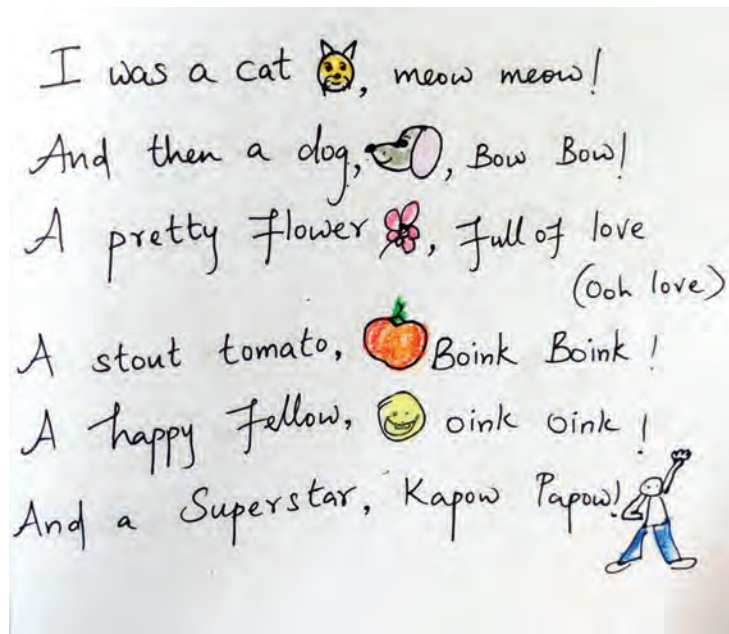 I was a cat, meow meow!
And then a dog, , Bow Bow!
A pretty flower, Full of love
(Ooh love)
A stout tomato, Boink Boink !
A happy fellow, oink oink !
And a Superstar, Kapow Papow!